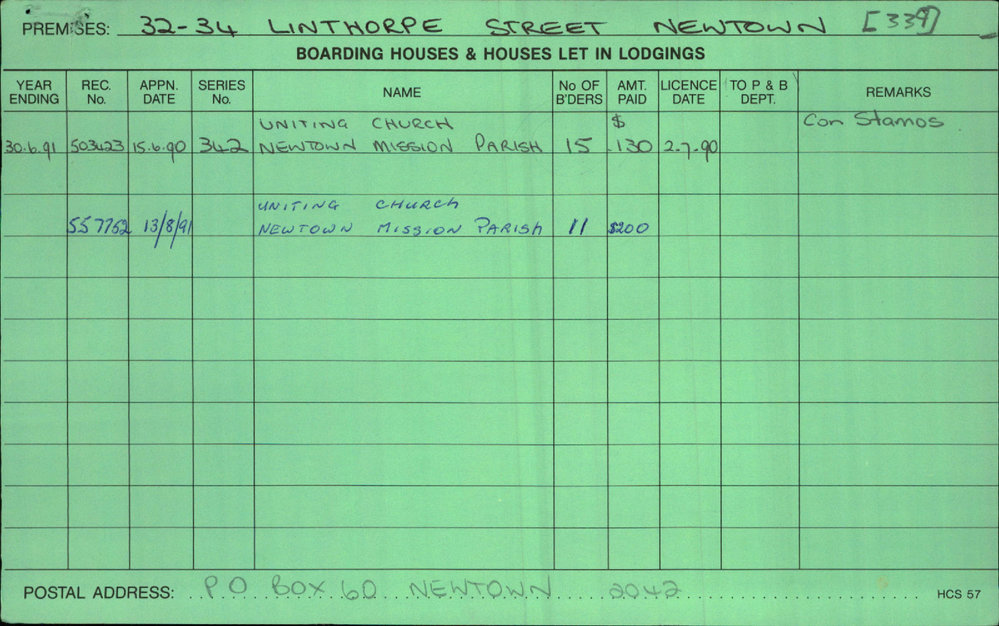 PREMISES: 32-34 LINTHORPE STREET NEWTOWN [339]
BOARDING HOUSES & HOUSES LET IN LODGINGS
YEAR ENDING REC. No. APPN. DATE SERIES No. NAME No OF B'DERS AMT. PAID LICENCE DATE TO P & B DEPT. REMARKS
UNITING CHURCH $ Con Stamos
30.6.91 503423 15.6.90 342 NEWTOWN MISSION PARISH 15 130 2-7-90
UNITING CHURCH
557752 13/8/91 NEWTOWN MISSION PARISH 11 $200
POSTAL ADDRESS: P.O BOX 60 NEWTOWN 2042 HCS 57